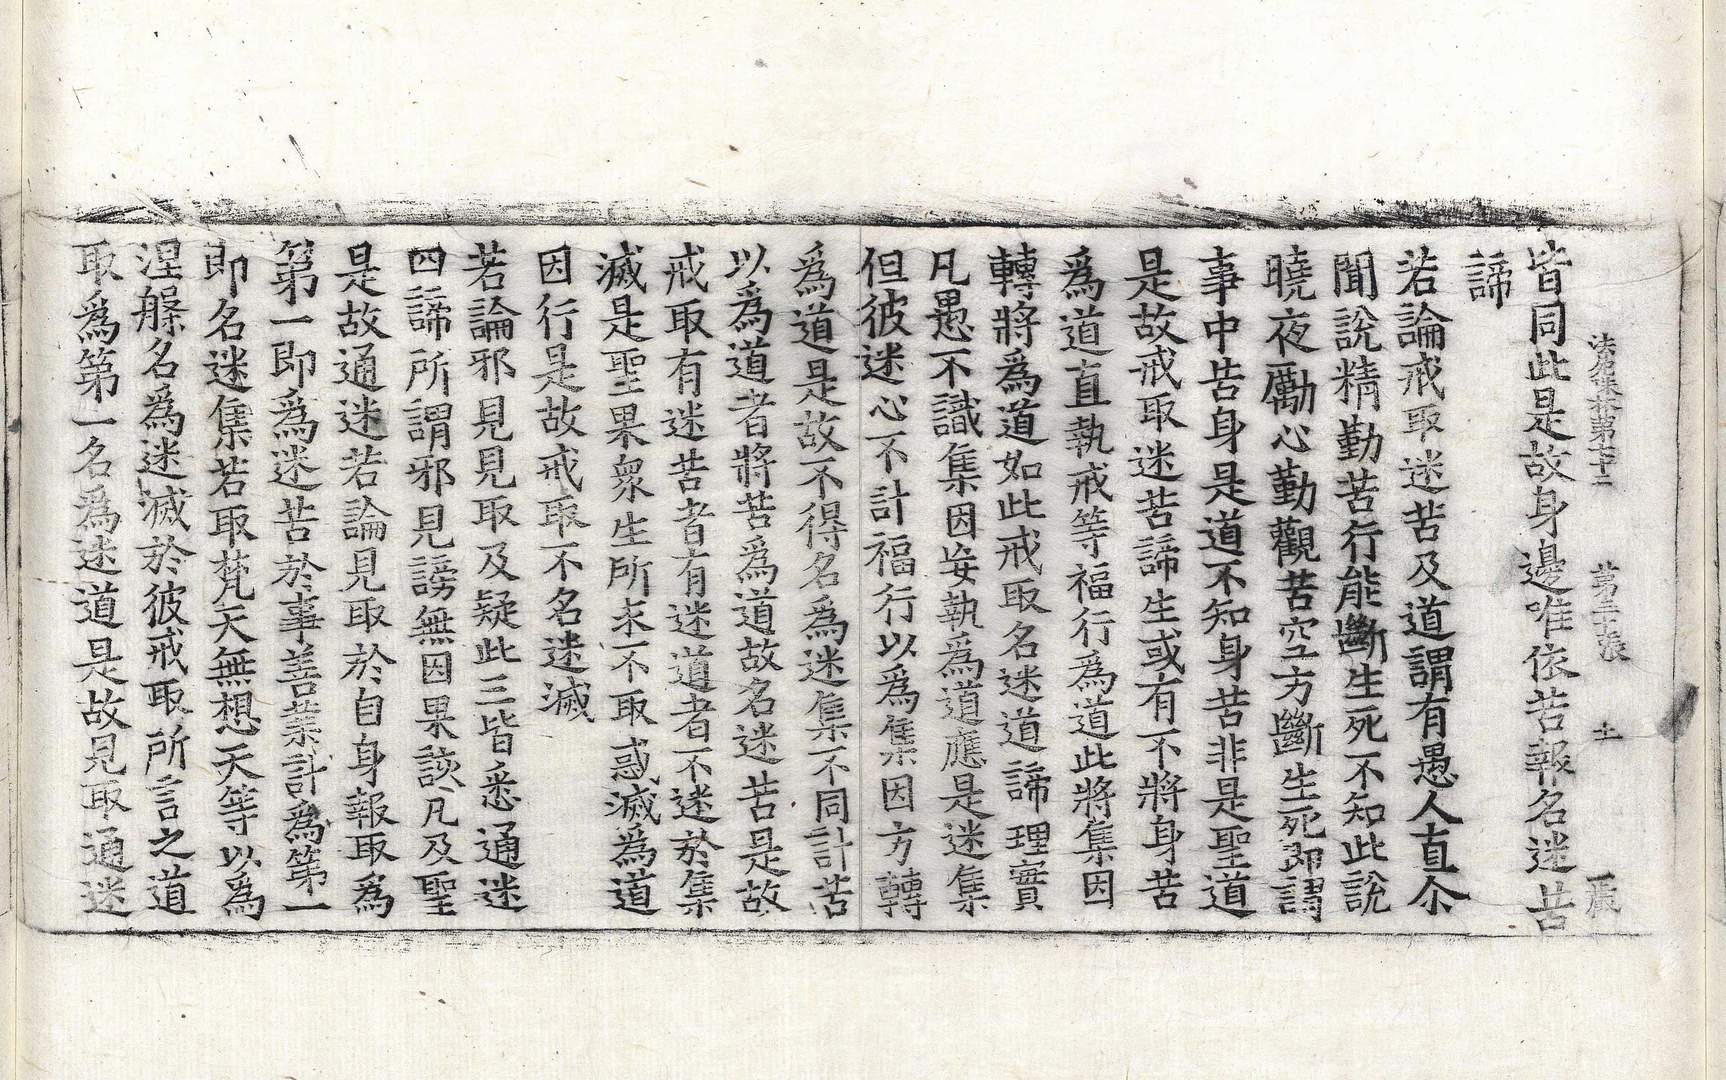 法苑珠林第七十二　第二十張　土　晨
皆同此是故身邊唯依苦報名迷苦
諦
若論戒取迷苦及道謂有愚人直尒
聞說精勤苦行能斷生死不知此說
曉夜勵心勤觀苦空方斷生死即謂
事中苦身是道不知身苦非是聖道
是故戒取迷苦諦生或有不將身苦
為道直執戒等福行為道此將集因
轉將為道如此戒取名迷道諦理實
凡愚不識集因妄執為道應是迷集
但彼迷心不計福行以為集因方轉
為道是故不得名為迷集不同計苦
以為道者將苦為道故名迷苦是故
戒取有迷苦者有迷道者不迷於集
滅是聖果眾生所求不取惑滅為道
因行是故戒取不名迷滅
若論邪見見取及疑此三皆悉通迷
四諦所謂邪見謗無因果該凡及聖
是故通迷若論見取於自身報取為
第一即為迷苦於事善業計為第一
即名迷集若取梵天無想天等以為
涅槃名為迷滅於彼戒取所言之道
取為第一名為迷道是故見取通迷